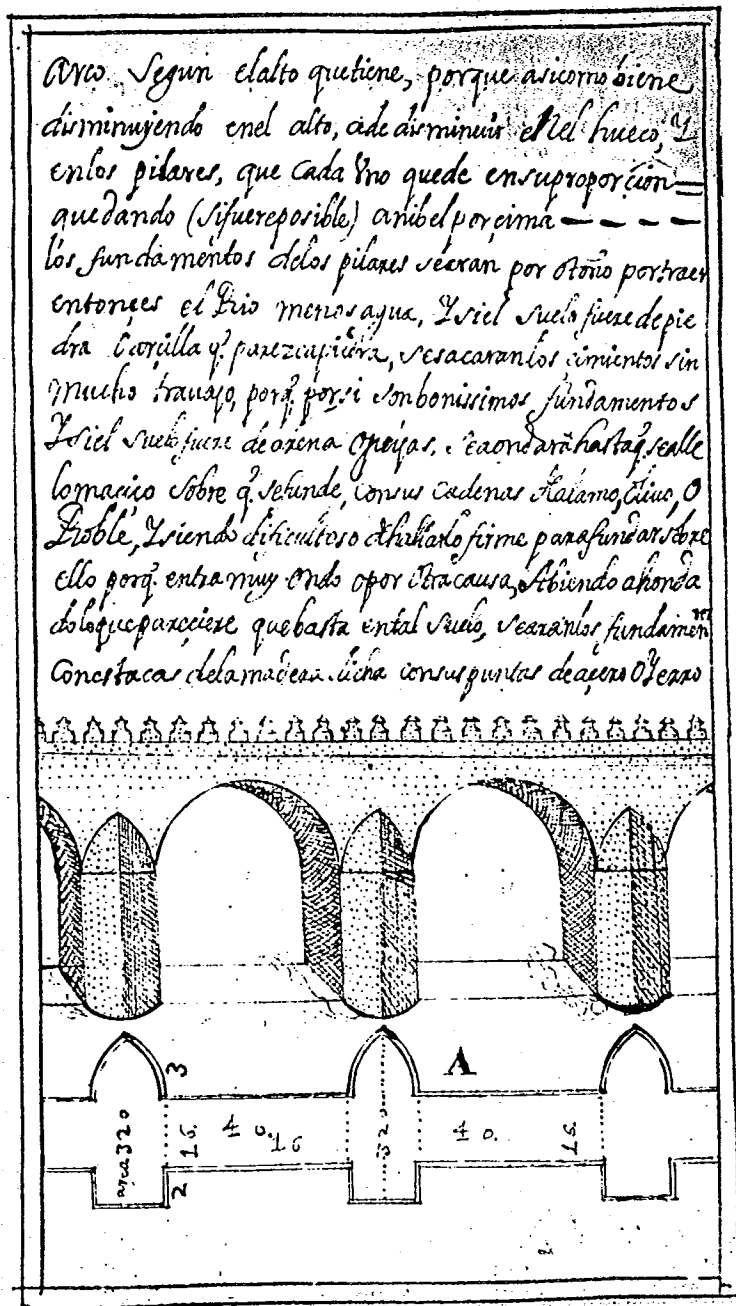 Arco. Segun elalto quetiene, porque asicomo biene
disminuyendo enel alto, ade disminuir eNel hueco, Y
enlos pilares, que Cada Vno quede ensuproporçion
quedando (sifuereposible) anibel porçima
los fundamentos delos pilares searan por otoño portraer
entonçes el Rio menos agua, Ysiel suelo fuere depie
dra Tosquilla q. parezcapiedra, sesacaranlos cimientos sin
Mucho travajo, porq. porsi sonbonissimos fundamentos
Ysiel suelo fuere dearena, seaondara hastaq. sealle
lomaçiço sobre q. sefunde, Consus Cadenas Olivo, O
Roble, Ysiendo dificultoso firme parafundar sobre
ello porq. entra muy Ondo opor Otra causa, ahonda
doloquepareçiere que basta ental Suelo, searanlos fundamen
Conestacas delamadera dicha consus puntas deaçero OYerro
A
3
area320
16.
40.
16
320
40.
16.
2